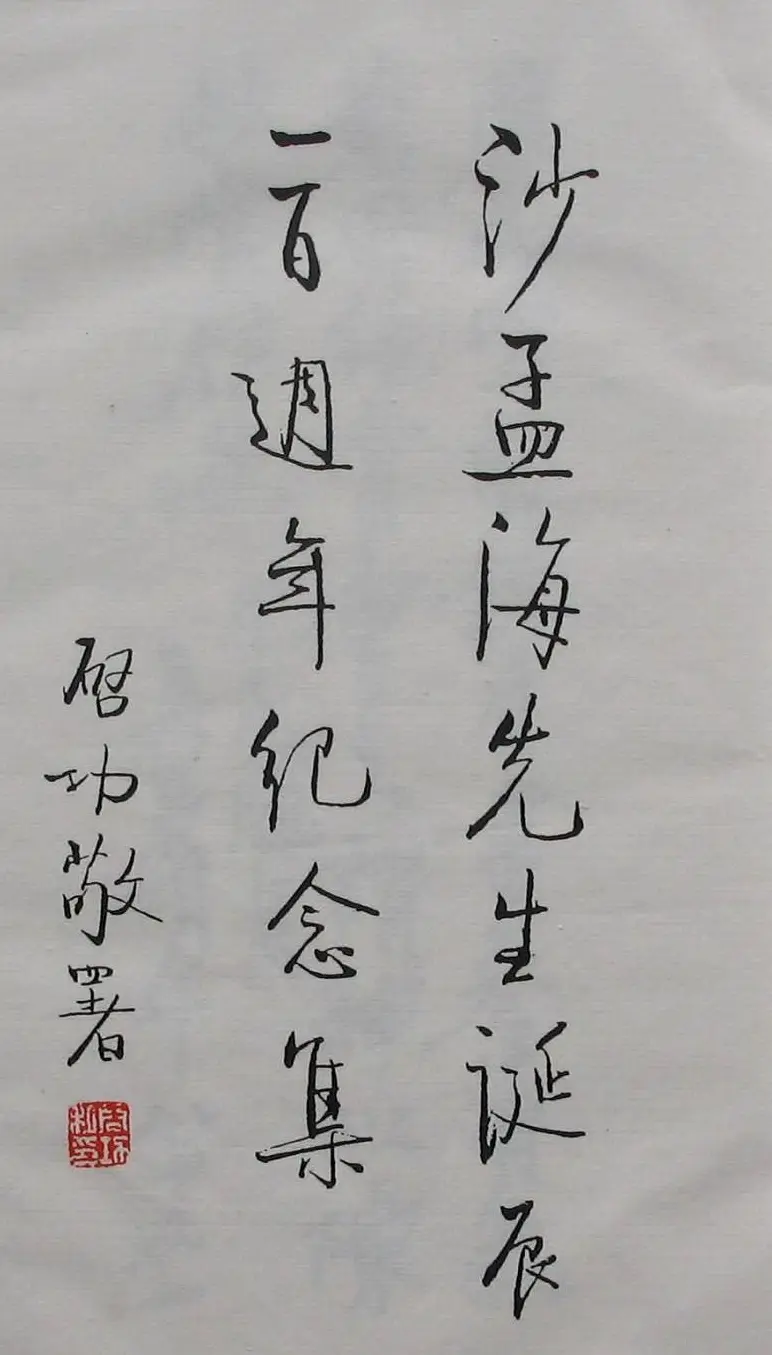 沙孟海先生誕辰
一百週年紀念集
啓功敬署